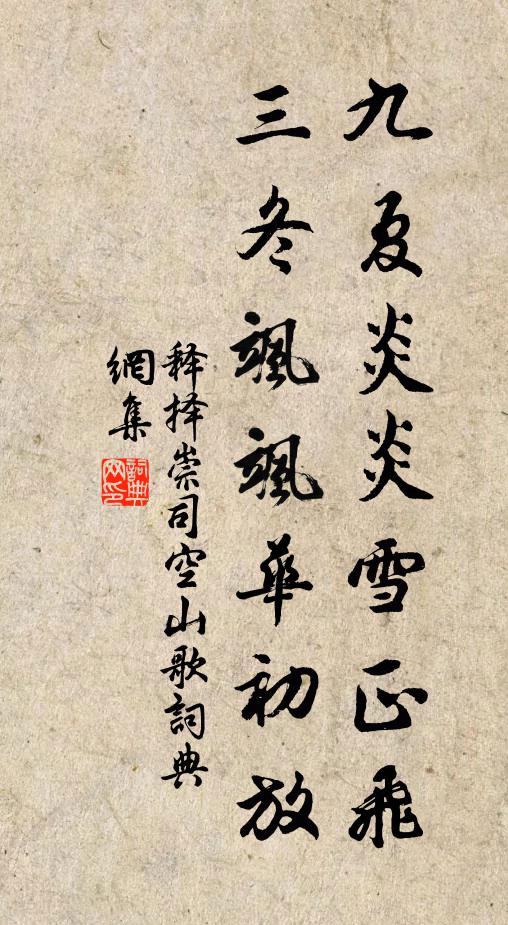 九夏炎炎雪正飛
三冬颯颯華初放
释择崇司空山歌詞典
網集
詞典
网印